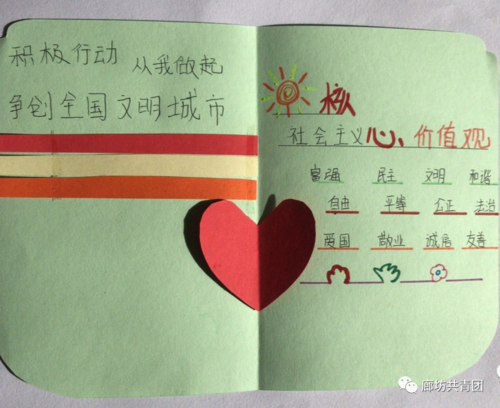 积极行动 从我做起
争创全国文明城市
核
社会主义心价值观
富强 民主 文明 和谐
自由 平等 公正 法治
爱国 敬业 诚信 友善
廊坊共青团